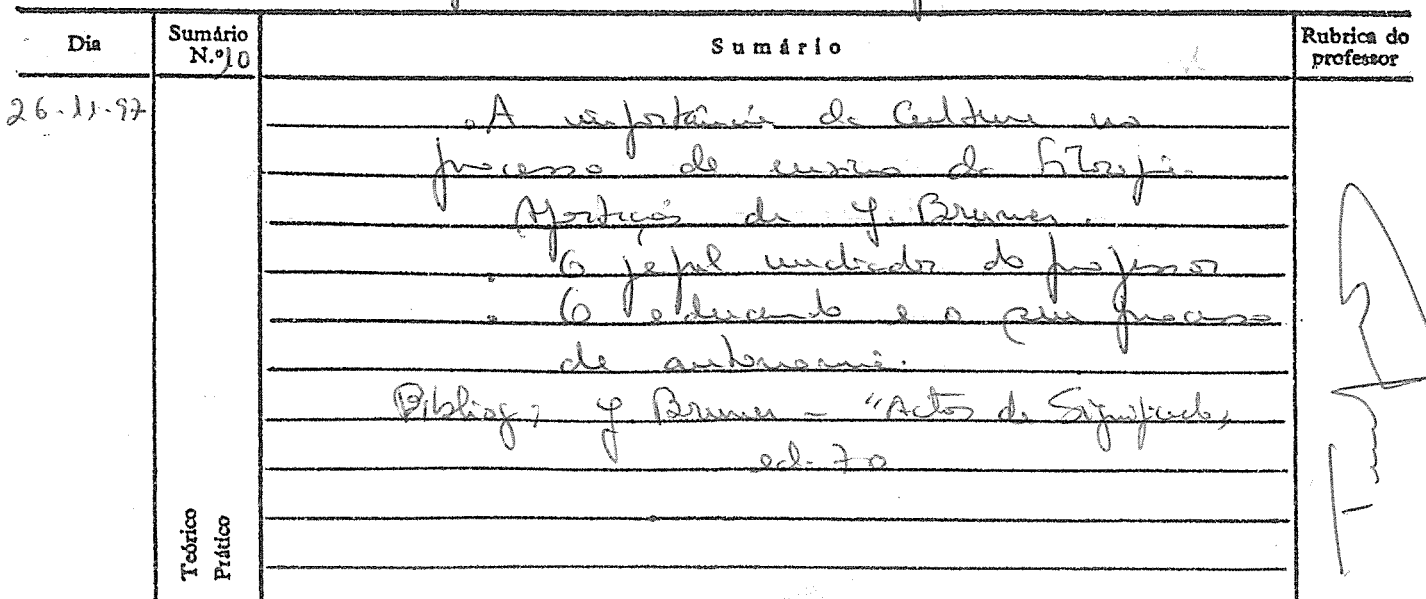 Dia
Sumário N.º 10
Sumário
Rubrica do professor
26-11-97
. A importância da Cultura no
processo de ensino da Filosofia.
Aportações de J. Bruner.
. O papel mediador do professor
. O educando e o seu processo
de autonomia.
Bibliog; J Bruner - "Actos de Significado,
ed. 70
Teórico
Prático